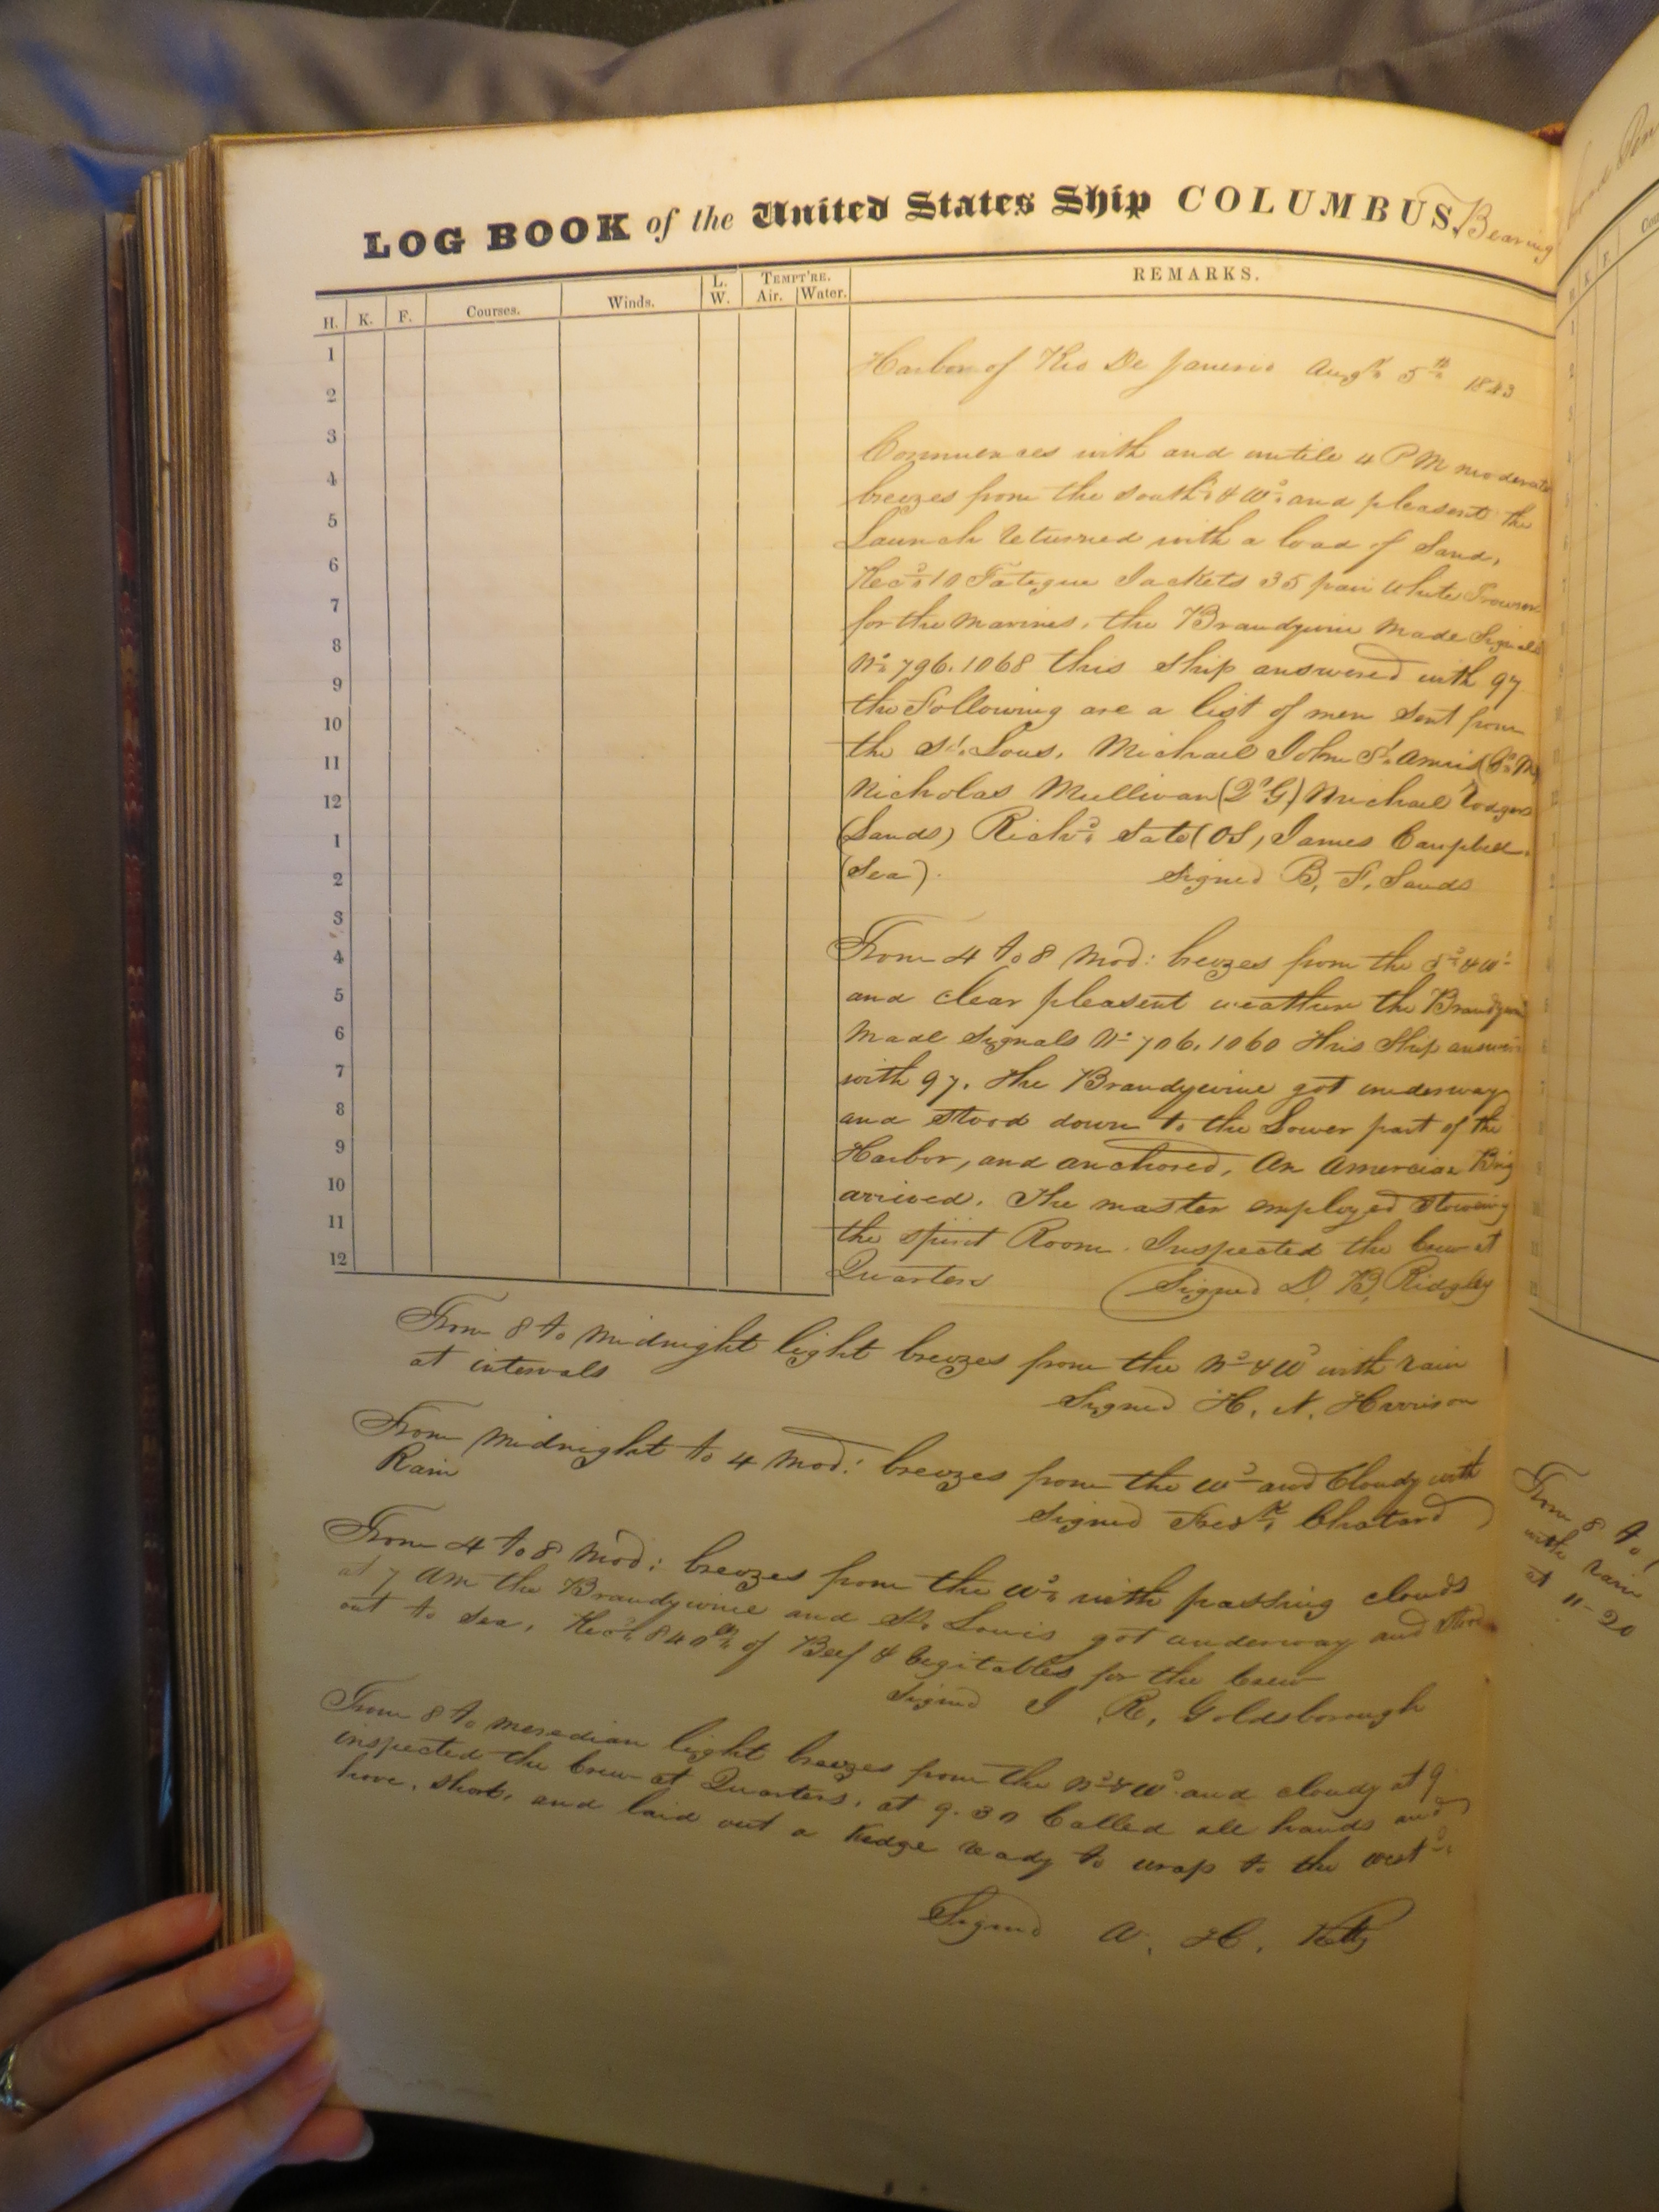 LOG BOOK of the United States Ship COLUMBUS, Bearing
H. K. F. Courses. Winds. L. W. TEMPT'RE. Air. Water. REMARKS.
1
2
3
4
5
6
7
8
9
10
11
12
1
2
3
4
5
6
7
8
9
10
11
12
Harbor of Rio De Janerio Augt 5th 1843
Commences with and untile 4 PM moderate
breezes from the southd & Wd and pleasent the
Launch returned with a load of Sand,
Recd 10 Fatigue Jackets 35 pair White Trowsers
for the marines, the Brandywine made Signals
No 796. 1068 this ship answered with 97
the following are a list of men sent from
the St. Lous. Michael John St. Amris
Nicholas Mullivan (Qr G) Michael Rodgers
(Lands) Richd Tate (OS) James Campbell
(Sea). Signed B. F. Sands
From 4 to 8 Mod: breezes from the Sd & Wd
and clear pleasent weather the Brandywine
Made Signals No 706. 1060 this Ship answered
with 97. the Brandywine got underway
and stood down to the Lower part of the
Harbor, and anchored, An Amercian Brig
arrived. The master employed stowing
the spirit Room. Inspected the Crew at
Quarters Signed D. B. Ridgley
From 8 to Midnight light breezes from the Nd & Wd with rain
at intervals
Signed H. N. Harrison
From Midnight to 4 Mod: breezes from the Wd and Cloudy with
Rain
Signed Fredk Chatard
From 4 to 8 Mod: breezes from the Wd with passing clouds
at 7 AM the Brandywine and St. Louis got underway and stood
out to Sea, Recd 840 lbs of Beef & Vegitables for the Crew
Signed J R. Goldsborough
From 8 to meredian light breezes from the Nd & Wd and cloudy at 9
inspected the Crew at Quarters, at 9.30 Called all hands and
hove, short, and laid out a Kedge ready to wrap to the westd
Signed A. H. Kilty
From 8 to
with rain
at 11-20